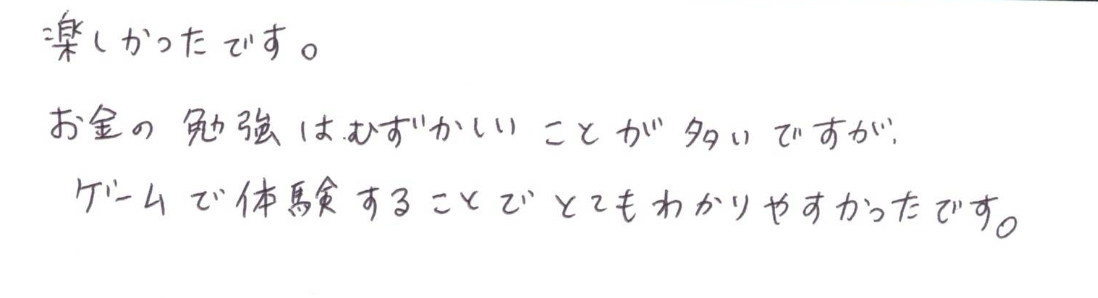 楽しかったです。
お金の勉強はむずかしいことが多いですが、
ゲームで体験することでとてもわかりやすかったです。